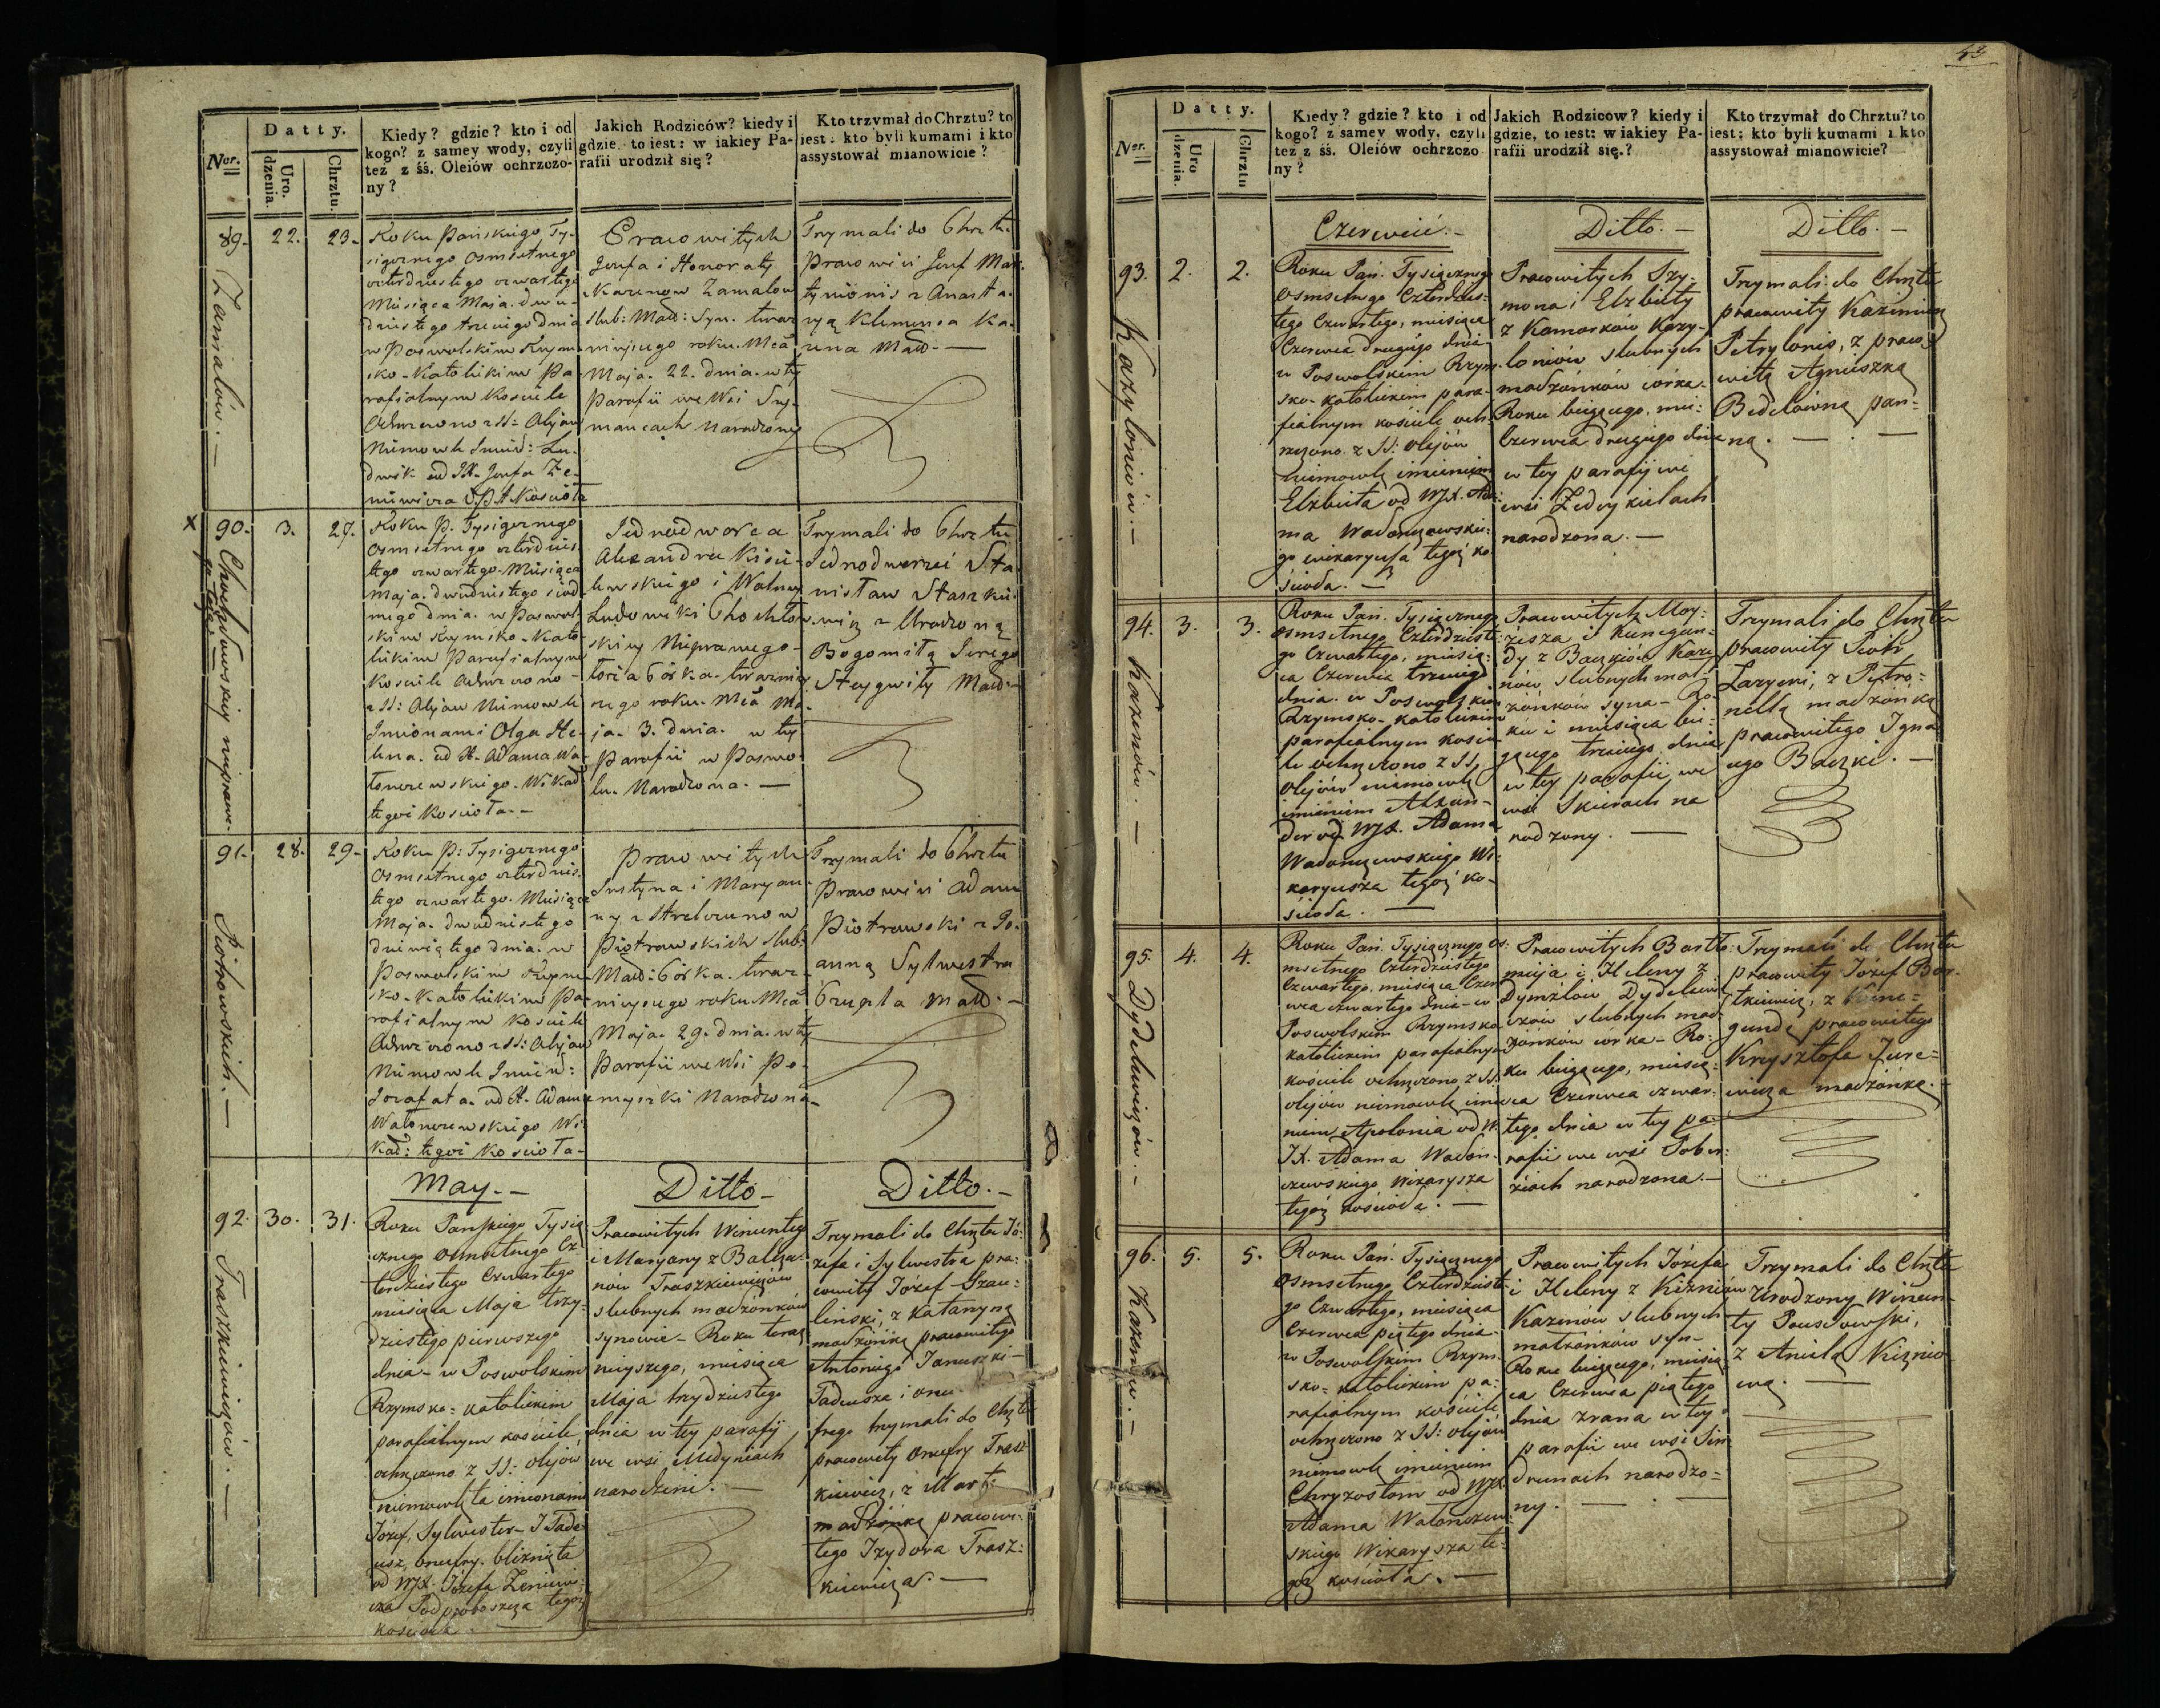 43
Datty.
Nor.
Uro.
dzenia.
Chrztu.
Kiedy? gdzie? kto i od
kogo? z samey wody, czyli
tez z śś. Oleiów ochrzczo-
ny?
Jakich Rodziców? kiedy i
gdzie. to iest: w iakiey Pa-
rafii urodził się?
Kto trzymał do Chrztu? to
iest: kto byli kumami i kto
assystował mianowicie?
89.
Zamalów. —
22.
23.
Roku Pańskiego Ty-
sięcznego Osmsetnego
czterdziestego czwartego
Miesiąca Maja. dwu-
dziestego trzeciego dnia
w Poswolskim Rzym-
sko-Katolickim Pa-
rafialnym Kosciele
Ochrzczono z SS: Olejów
Niemowle Imień: Lu-
dwik od JX. Jozefa Ze-
niewicza
Pracowitych
Jozefa i Honoraty
z Karenow Zamalow
slub: Małż: Syn. teraz
niejszego roku. Mca
Maja. 22. dnia. w tej
Parafii we Wsi Szy-
mancach Narodzony
Trzymali do Chrztu.
Pracowici Jozef Mar-
tynionis z Anasta-
zyą Klemensa Ka-
rena Małż. —
x 90.
Chochłowskiey nieprawe-
go łoża
3.
27.
Roku P. Tysięcznego
Osmsetnego czterdzies-
tego czwartego. Miesiąca
Maja. dwudziestego siód
mego dnia. w Poswol
skim Rzymsko-Kato-
lickim Parafialnym
Kosciele Ochrzczono -
z SS: Olejów Niemowle
Imionami Olga He-
lena. od X. Adama Wa-
łonczewskiego. Wikar
tegoż Koscioła. -
Jednodworca
Alexandra Kisie-
lewskiego i Wolney
Ludowiki Chochłow-
skiey Nieprawego -
łoża Córka. teraźniej
szego roku. Mca Ma-
ja. 3. dnia. w tej
Parafii w Poswo-
lu. Narodzona. —
Trzymali do Chrztu
Jednodworzec Sta-
nisław Staszkie-
wicz z Urodzoną
Bogomiłą Serego
Steygwiły Małż. -
91.
Piotrowskich. —
28.
29.
Roku P: Tysięcznego
Osmsetnego czterdzies-
tego czwartego. Miesiąca
Maja. dwudziestego
dziewiątego dnia. w
Poswolskim Rzym-
sko-Katolickim Pa-
rafialnym Kosciele
Ochrzczono z SS: Olejów
Niemowle Imień:
Jozafata. od X. Adama
Wałonczewskiego Wi-
kar: tegoż Kościoła -
Pracowitych
Justyna i Maryan-
ny z Strelczunow
Piotrowskich slub:
Małż: Córka. teraz-
niejszego roku Mca
Maja. 29. dnia. w tej
Parafii we Wsi Po-
myszki Narodzona -
Trzymali do Chrztu
Pracowici Adam
Piotrowski z Jo-
anną Sylwestra
Czupla Małż. -
May. -
Ditto -
Ditto. -
92.
Traszkiewiczów. —
30.
31.
Roku Pańskiego Tysią
cznego Osmsetnego Cz-
terdziestego Czwartego
miesiąca Maja trzy-
dziestego pierwszego
dnia - w Poswolskim
Rzymsko = katolickim
parafialnym kościele,
ochrzczono z SS: olejów
niemowlęta imionami
Józef, Sylwester - I Tade-
usz, Onufry. bliźnięta
od WJX. Józefa Zeniewi-
cza Podproboszcza tegoż
kościoła.
Pracowitych Wincentego
i Maryany z Balcza-
nów Traszkiewiczów
slubnych małżonków
synowie - Roku teraz
nieyszego, miesiąca
Maja trzydziestego
dnia w tey parafij
we wsi Medyniach
narodzeni. —
Trzymali do Chrztu Jó-
zefa i Sylwestra pra-
cowity Józef Szau-
linski, z Katarzyną
małżonką pracowitego
Antoniego Januszki -
Tadeusza i Onu-
frego trzymali do Chrztu
pracowity Onufry Trasz
kiewicz, z Martą
małżonką pracowi-
tego Izydora Trasz-
kiewicza. —
Datty.
Nor.
Uro
dzenia.
Chrztu
Kiedy? gdzie? kto i od
kogo? z samey wody, czyli
tez z śś. Oleiów ochrzczo
ny?
Jakich Rodziców? kiedy i
gdzie, to iest: w iakiey Pa-
rafii urodził się.?
Kto trzymał do Chrztu? to
iest: kto byli kumami i kto
assystował mianowicie?
Czerwieć. -
Ditto. -
Ditto. -
93.
Kazyloniów. —
2.
2.
Roku Pań. Tysiącznego
Osmsetnego Czterdzies-
tego Czwartego, miesiąca
Czerwca drugiego dnia
w Poswolskim Rzym-
sko-katolickim para-
fialnym kościele och-
rzczono z SS: olejów
niemowlę imieniem
Elżbieta od WJX. Ada-
ma Wałonczewskie-
go wikaryusza tegoż ko
ścioła. —
Pracowitych Szy-
mona i Elżbiety
z Komorków Kazy-
loniów slubnych
małżonków córka -
Roku bieżącego, mie:
Czerwca drugiego dnia
w tey parafij we
wsi Zedeykielach
narodzona. —
Trzymali do Chrztu
pracowity Kazimierz
Petrylonis, z praco-
witą Agnieszką
Bedelówną pan-
ną. — . —
94.
Kazenów. —
3.
3.
Roku Pań. Tysiącznego
Osmsetnego Czterdzieste-
go Czwartego, miesią-
ca Czerwca trzeciego
dnia. w Poswolskim
Rzymsko-katolickim
parafialnym koście
le ochrzczono z SS.
Olejów niemowlę
imieniem Alexan-
der od WJX. Adama
Wałonczewskiego Wi-
karyusza tegoż ko-
ścioła. —
Pracowitych Moy-
żesza i Kunegun-
dy z Baczków Kaze
nów slubnych mał-
żonków syna - Ro-
ku i miesiąca bie-
żącego trzeciego dnia
w tey parafii we
wsi Skierach na
rodzony. —
Trzymali do Chrztu
pracowity Piotr
Łazyeni, z Petro-
nellą małżonką
pracowitego Igna
cego Baczki. —
95.
Dydelewiczów. —
4.
4.
Roku Pań. Tysiącznego Os-
msetnego Czterdziestego
Czwartego, miesiąca Czer
wca czwartego dnia - w
Poswolskim Rzymsko
katolickim parafialnym
kościele ochrzczono z SS.
olejów niemowlę imie
niem Apolonia od W.
JX. Adama Wałon-
czewskiego Wikarysza
tegoż kościoła. —
Pracowitych Bartło-
mieja i Heleny z
Dymżlów Dydelewi
czów slubnych mał
żonków córka - Ro-
ku bieżącego, miesią-
ca Czerwca czwar-
tego dnia w tey pa-
rafii we wsi Tober-
żiach narodzona. —
Trzymali do Chrztu
pracowity Józef Bar-
tkiewicz, z Kune-
gundą pracowitego
Krysztofa Jure-
wicza małżonką. -
96.
Kazenów. —
5.
5.
Roku Pań. Tysiącznego
Osmsetnego Czterdzieste-
go Czwartego, miesiąca
Czerwca piątego dnia -
w Poswolskim Rzym-
sko = katolickim pa-
rafialnym kościele
ochrzczono z SS: olejów
niemowlę imieniem
Chryzostom od WJX.
Adama Wałonczew-
skiego Wikarysza te-
goż kościoła. —
Pracowitych Józefa
i Heleny z Kiżniów
Kazenów slubnych
małżonków syn -
Roku bieżącego, miesią
ca Czerwca piątego
dnia zrana w tey
parafii we wsi Sin-
drunach narodzo-
ny. — . —
Trzymali do Chrztu
Urodzony Wincen-
ty Pouszowski,
z Anielą Kiżnio
wą. —